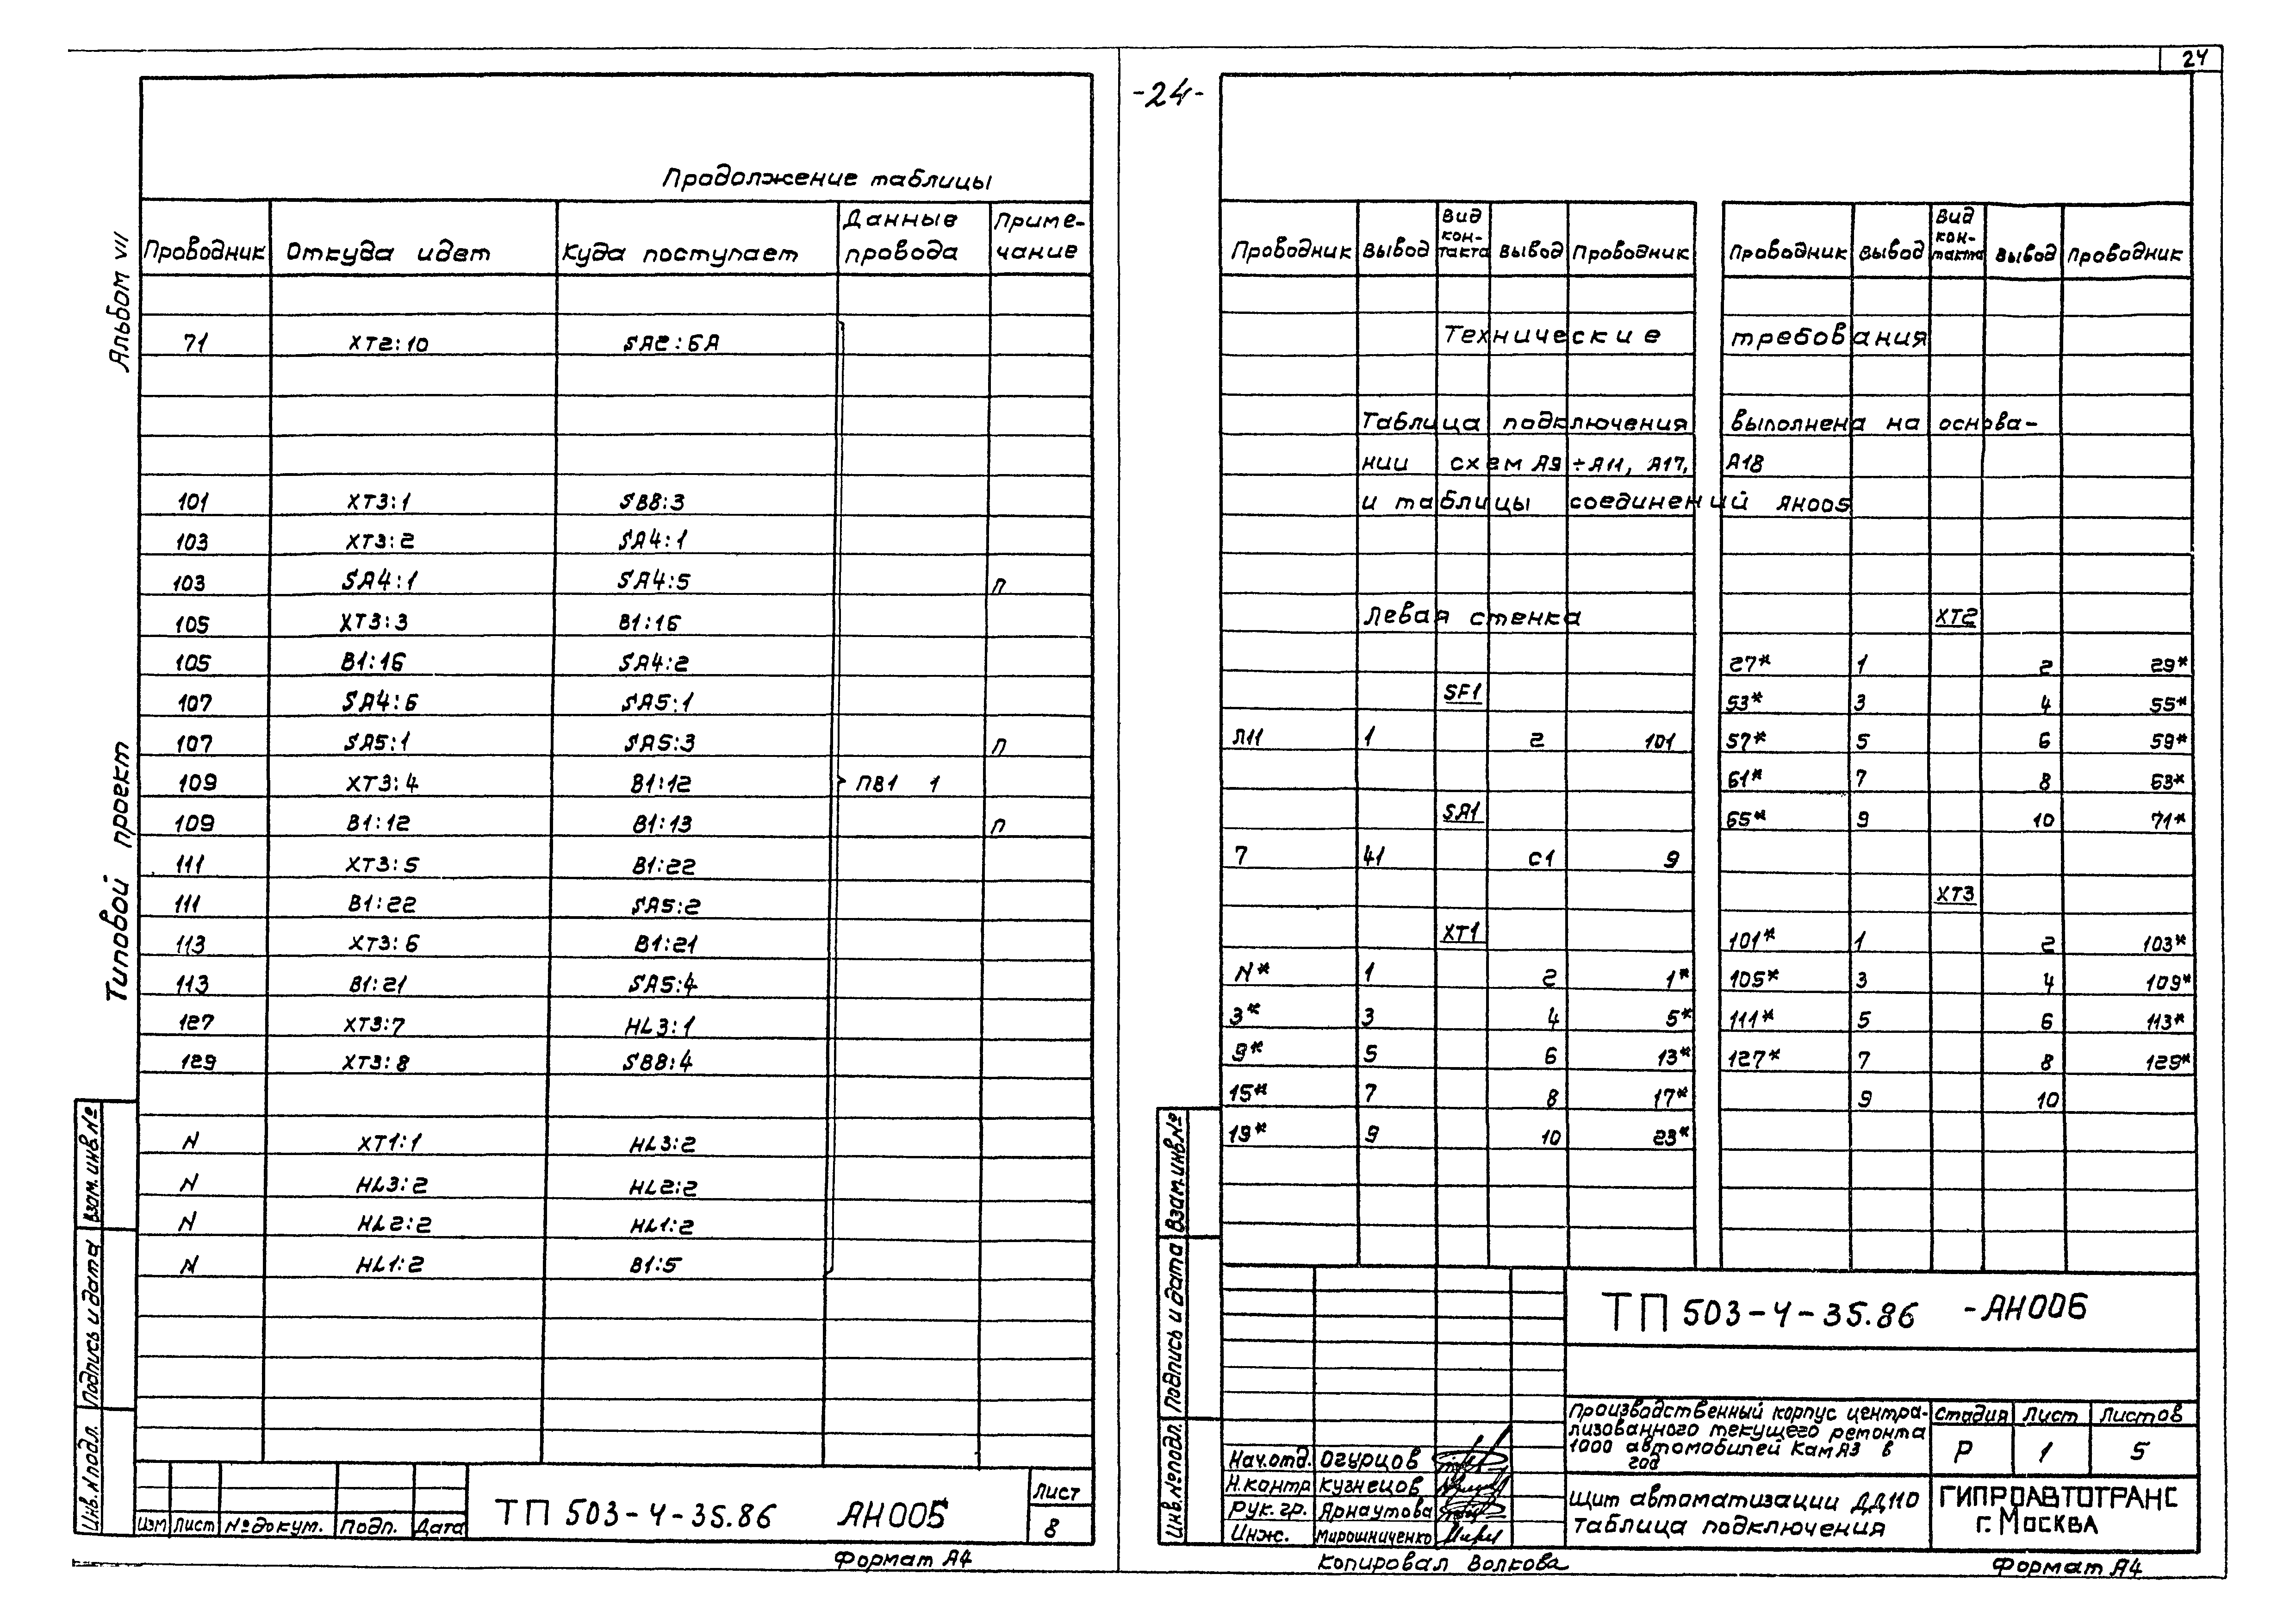 24
-24-
Альбом VII
Типовой проект
Продолжение таблицы
Проводник Откуда идет Куда поступает Данные провода Приме-чание
71 XT2:10 SA2:6A
101 XT3:1 SB8:3
103 XT3:2 SA4:1
103 SA4:1 SA4:5 П
105 XT3:3 B1:16
105 B1:16 SA4:2
107 SA4:6 SA5:1
107 SA5:1 SA5:3 П
109 XT3:4 B1:12 ПВ1 1
109 B1:12 B1:13 П
111 XT3:5 B1:22
111 B1:22 SA5:2
113 XT3:6 B1:21
113 B1:21 SA5:4
127 XT3:7 HL3:1
129 XT3:8 SB8:4
N XT1:1 HL3:2
N HL3:2 HL2:2
N HL2:2 HL1:2
N HL1:2 B1:5
Взам. инв №
Подпись и дата
Инв. N подл.
Изм Лист № докум. Подп. Дата
ТП 503-4-35.86 АН005
Лист
8
Формат А4
Проводник Вывод Вид кон-такта Вывод Проводник Проводник Вывод Вид кон-такта Вывод Проводник
Технические требования
Таблица подключения выполнена на основа-
нии схем А9÷А11, А17, А18
и таблицы соединений АН005
Левая стенка
SF1
Л11 1 2 101
SA1
7 41 C1 9
XT1
N* 1 2 1*
3* 3 4 5*
9* 5 6 13*
15* 7 8 17*
19* 9 10 23*
XT2
27* 1 2 29*
53* 3 4 55*
57* 5 6 59*
61* 7 8 63*
65* 9 10 71*
XT3
101* 1 2 103*
105* 3 4 109*
111* 5 6 113*
127* 7 8 129*
9 10
Взам. инв №
Подпись и дата
Инв. № подл.
ТП 503-4-35.86 -АН006
Производственный корпус центра-
лизованного текущего ремонта
1000 автомобилей КамАЗ в
год
Стадия Лист Листов
Р 1 5
Нач. отд. Огурцов
Н. контр Кузнецов
Рук. гр. Ярнаутова
Инж. Мирошниченко
Щит автоматизации ДД110
Таблица подключения
ГИПРОАВТОТРАНС
г. Москва
Копировал Волкова
Формат А4